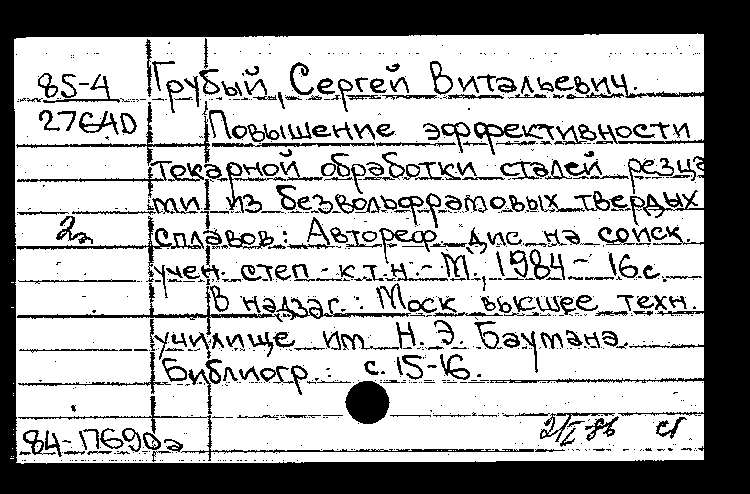 85-4 Грубый, Сергей Витальевич.
27640 Повышение эффективности
токарной обработки сталей резца
ми из безвольфрамовых твердых
2а сплавов: Автореф. дис. на соиск.
учен. степ. - к.т.н. - М., 1984 - 16 с.
В надзаг.: Моск высшее техн.
училище им. Н. Э. Баумана.
Библиогр.: с. 15-16.
84-17690а 2/I-86